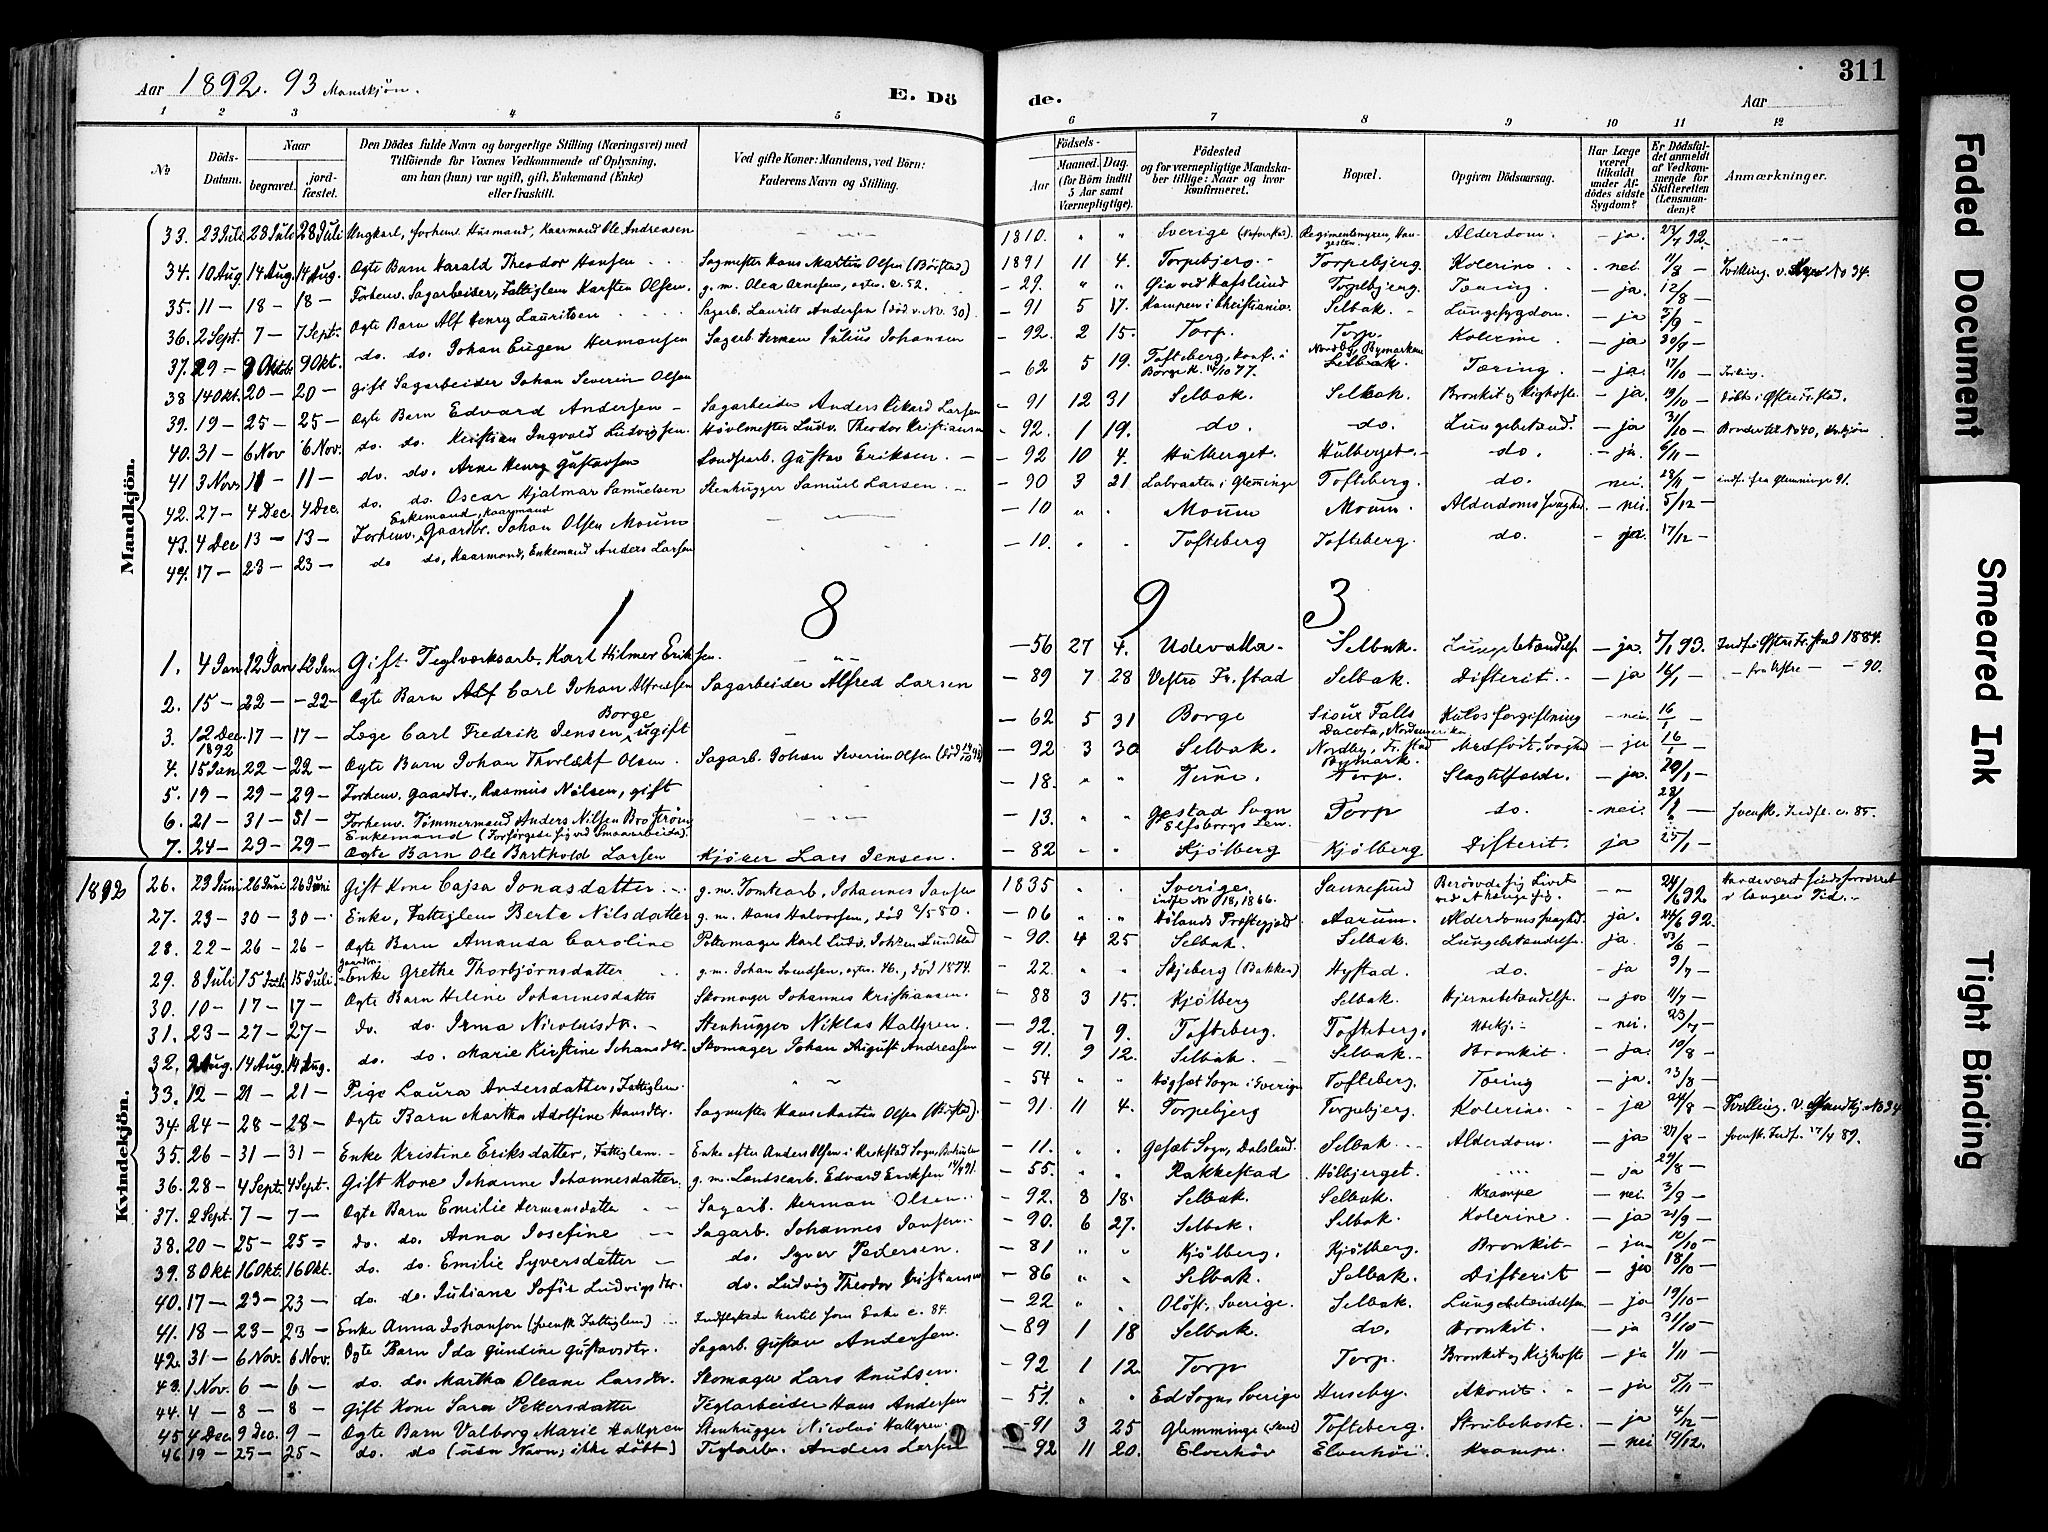 Aar 1892. 93 Mandkjön.
E. Dö
de.
Aar
311
1 2 3 4 5 6 7 8 9 10 11 12
№
Döds-Datum.
Naar
begravet.
jord-fæstet.
Den Dödes fulde Navn og borgerlige Stilling (Næringsvei) med
Tilföiende for Voxnes Vedkommende af Oplysning,
om han (hun) var ugift, gift, Enkemand (Enke)
eller fraskilt.
Ved gifte Koner: Mandens, ved Börn:
Faderens Navn og Stilling.
Födsels-
Aar
Maaned. Dag.
(for Börn indtil
5 Aar samt
Værnepligtige).
Födested
og for værnepligtige Mandska-
ber tillige: Naar og hvor
konfirmeret.
Bopæl.
Opgiven Dödsaarsag.
Har Læge
været
tilkaldt
under Af-
dödes sidste
Sygdom?
Er Dödsfal-
det anmeldt
af Vedkom-
mende for
Skifteretten
(Lensman-
den)?
Anmærkninger.
Mandkjön.
33. 23 Juli 28 Juli 28 Juli Ungkarl, forhenv. Husmand, Kaarmand Ole Andreasen 1810. " " Sverige Alderdom. – ja. 23/7 92.
34. 10 Aug 14 Aug. 14 Aug. Ægte Barn Harald Theodor Hansen Sagmester Hans Martin Olsen (Börstad) 1891 11 4. Torpebjerg. Torpebjerg. Kolerine – nei. 11/8 – Tvilling v. No 34.
35. 11 – 18 – 18 – Forhenv. Sagarbeider, Fattiglem Karsten Olsen. g. m. Olea Arnesen, egtv. c. 52. – 29. " " Öia ved Hafslund Torpebjerg. Tæring. – ja. 12/8 –
36. 2 Sept. 7 – 7 Sept. Ægte Barn Alf Henry Lauritsen Sagarb. Laurits Andersen (död v. No. 30) – 91 5 17. Kampen i Christiania. Selbak. Lungesygdom. – ja 3/9 –
37. 29 – 9 Oktob. 9 Okt. do. do. Johan Eugen Hermansen Sagarb. Herman Julius Johansen – 92. 2 15. Torp. Torp. Kolerine – ja 30/9 –
38 14 Okt. 20 – 20 – gift Sagarbeider Johan Severin Olsen – 62 5 19. Tofteberg, konf. i Borge K. 14/10 77. Nordby, Bymarken Selbak. Tæring. – ja. 17/10 –
39. 19 – 25 – 25 – Ægte Barn Edvard Andersen – Sagarbeider Anders Rikard Larsen – 91 12 31 Selbak. Selbak. Bronkit og Kighoste – ja. 19/10 – Döbt i Östre Fr.stad.
40. 31 – 6 Nov 6 Nov. do. do. Kristian Ingvald Ludvigsen. Hövlmester Ludv. Theodor Kristiansen – 92. 1 19. do. do. Lungebetænd. – ja 31/10 –
41 3 Nov. 11 – 11 – do. do. Arne Henry Gustavsen Landsarb. Gustav Eriksen. – – 92 10 4. Hulberget. Hulberget. do. – ja. 6/11 –
42. 27 – 4 Dec. 4 Dec. do. do. Oscar Hjalmar Samuelsen Stenhugger Samuel Larsen. – 90 3 21 Labraaten i Glemminge Tofteberg. do. nei. 28/11 – indf. fra Glemminge 91.
43. 4 Dec 13 – 13 – Forhenv. Gaardbr. Enkemand, Kaarmand Johan Olsen Moum – 10 " " Moum Moum. Alderdomssvaghed – nei. 5/12 –
44. 17 – 23 – 23 – do do, Kaarmand, Enkemand Anders Larsen – 10. " " Tofteberg Tofteberg. do. – nei. 17/12 –
1 8 9 3
1. 4 Jan 12 Jan 12 Jan Gift Teglværksarb. Karl Hilmer Eriksen. – 56 27 4. Udevalla. Selbak. Lungebetændelse – ja. 5/1 93. Indf. i Östre Fr.stad 1884.
2. 15 – 22 – – 22 – Ægte Barn Alf Carl Johan Alfredsen Sagarbeider Alfred Larsen – 89 7 28 Vestre Fr.stad Selbak. Difterit. – ja 16/1 – – fra Östre – – 90.
3. 12 Dec. 1892 17 – 17 – Læge Carl Fredrik Jensen Borge ugift – 62 5 31 Borge Sioux Falls Dacota, Nordamerika Kulosforgiftning – nei. 16/1 –
4. 15 Jan 22 – 22 – Ægte Barn Johan Thorleif Olsen. Sagarb. Johan Severin Olsen – 92 3 30 Selbak. Nordby, Fr.stad Bymark. Medfödt Svaghed – ja 16/1 –
5. 19 – 29 – 29 – Forhenv. Gaardbr., Rasmus Nilsen, gift – 18. " " Tune. Torp. Slagtilfælde. – ja. 20/1 –
6. 21 – 31 – 31 – Forhenv. Tömmermand Anders Nilsen Broström Enkemand (Forsörgede sig ved Smaaarbeide). – 13. " " Gestad Sogn Elfsborgs Len. Torp do. – nei. Svensk. Indfl. c. 85.
7. 24 – 29 – 29 – Ægte Barn Ole Barthold Larsen Kjöver Lars Jensen. – 82 " " Kjölberg Kjölberg Difterit. ja 25/1 –
1892
Kvindekjön.
26. 23 Juni 26 Juni 26 Juni Gift Kone Cajsa Jonasdatter. g. m. Tomtearb. Johannes Jansen 1835 " " Sverige. indfl. No 18, 1866. Sannesund Berövede sig Livet ved at hænge sig. – " 24/6 92 Havde været sindsforvirret i længere Tid.
27. 23 – 30 – 30 – Enke, Fattiglem Berte Nilsdatter g. m. Hans Halvorsen, död 2/5 80. – 06 " " Hölands Præstegjæld Aarum. Alderdomssvaghed. ja. 24/6 92.
28. 22 – 26 – 26 – Ægte Barn Amanda Caroline Pottemager Karl Ludv. Johsen Lundblad – 90. 4 25 Selbak. Selbak. Lungebetændelse. ja. 23/6 –
29. 8 Juli 15 Juli 15 Juli Gaardbr. Enke Grethe Thorbjørnsdatter g. m. Johan Svendsen, egtv. 46., död 1874. – 22. " " Skjeberg (Bakken) Hystad. do. – ja 9/7 –
30. 10 – 17 – 17 – Ægte Barn Heline Johannesdatter Skomager Johannes Kristiansen. – 88 3 15. Kjölberg Selbak. Hjernebetændelse. – ja 11/7 –
31. 23 – 27 – 27 – do. do. Irma Nicolaisdr. – Stenhugger Niklas Hallgren. – 92. 7 9. Tofteberg. Tofteberg. Ubekj. – nei. 23/7 –
32. 2 Aug. 14 Aug. 14 Aug. do. do. Marie Kirstine Johansdtr. Skomager Johan August Andreasen – 91. 9 12. Selbak. Selbak. Bronkit. – ja. 10/8 –
33. 12 – 21 – 21 – Pige Laura Andersdatter, Fattiglem. – 54 " " Högsæt Sogn i Sverige Tofteberg. Tæring – ja. 13/8 –
34. 24 – 28 – 28 – Ægte Barn Martha Adolfine Hansdtr. Sagmester Hans Martin Olsen (Börstad). – 91. 11 4. Torpebjerg Torpebjerg. Kolerine. – ja 24/8 – Tvilling v. Mandkj. No 34
35. 26 – 31 – 31 – Enke Kristine Eriksdatter, Fattiglem. – Enke efter Anders Olsen i Krokstad Sogn, – 11. " " Gesæt Sogn, Dalsland. Selbak. Alderdom. – ja 27/8 – Svensk. Indfl. 17/4 89.
36. 28 – 4 Sept. 4 Sept. Gift Kone Johanne Johannesdatter. g. m. Landsearb. Edvard Eriksen 14/4 91. – 55. " " Rakkestad Hölbjerget. – ja 29/8 –
37. 2 Sept. 7 – 7 – Ægte Barn Emilie Hermansdatter Sagarb. Herman Olsen – 92. 8 18. Selbak. Selbak. Krampe – nei. 3/9 –
38. 20 – 25 – 25 – do. do. Anna Josefine Sagarb. Johannes Jansen. – 90. 6 27. Selbak. Selbak. Kolerine. – ja 21/9 –
39. 8 Okt. 16 Okt. 16 Okt. do. do. Emilie Syversdatter – do. Syver Pedersen. – 81 " " Kjölberg. Kjölberg. Bronkit – – ja. 10/10 –
40. 17 – 23 – 23 – do. do. Juliane Sofie Ludvigsdtr. do. Ludvig Theodor Kristiansen – 86 " " Selbak. Selbak. Difterit – ja 18/10 –
41. 18 – 23 – 23 – Enke Anna Johanson (svensk Fattiglem) Indflyttede hertil som Enke c. 84. – 22 " " Olöst, Sverige. Selbak. Lungebetændelse. – ja 19/10 –
42. 31 – 6 Nov. 6 Nov. Ægte Barn Ida Gundine Gustavsdtr. Sagarb. Gustav Andersen. – 89 1 18 Selbak. do. Bronkit. – ja 31/10 –
43. 1 Nov. 6 – 6 – do. do. Martha Oleane Larsdtr. Skomager Lars Knudsen. – 92 1 12. Torp Torp. Bronkit og Kighoste – ja 1/11 –
44. 4 – 8 – 8 – Gift Kone Sara Pettersdatter Teglarbeider Hans Andersen – 51. " " Ed Sogn, Sverige Huseby. Akonit. – ja 5/11 –
45 4 Dec 9 Dec. 9 – Ægte Barn Valborg Marie Hallgren Stenhugger Nicolai Hallgren. – 91 3 25 Glemminge Tofteberg. Strubehoste. – ja 4/12 –
46. 19 – 25 – 25 – do. do (uden Navn; ikke döbt) Teglarb. Anders Larsen – 92 11 20. Elverhöi Elverhöi Krampe. – nei 19/12. –
Faded Document
Smeared Ink
Tight Binding